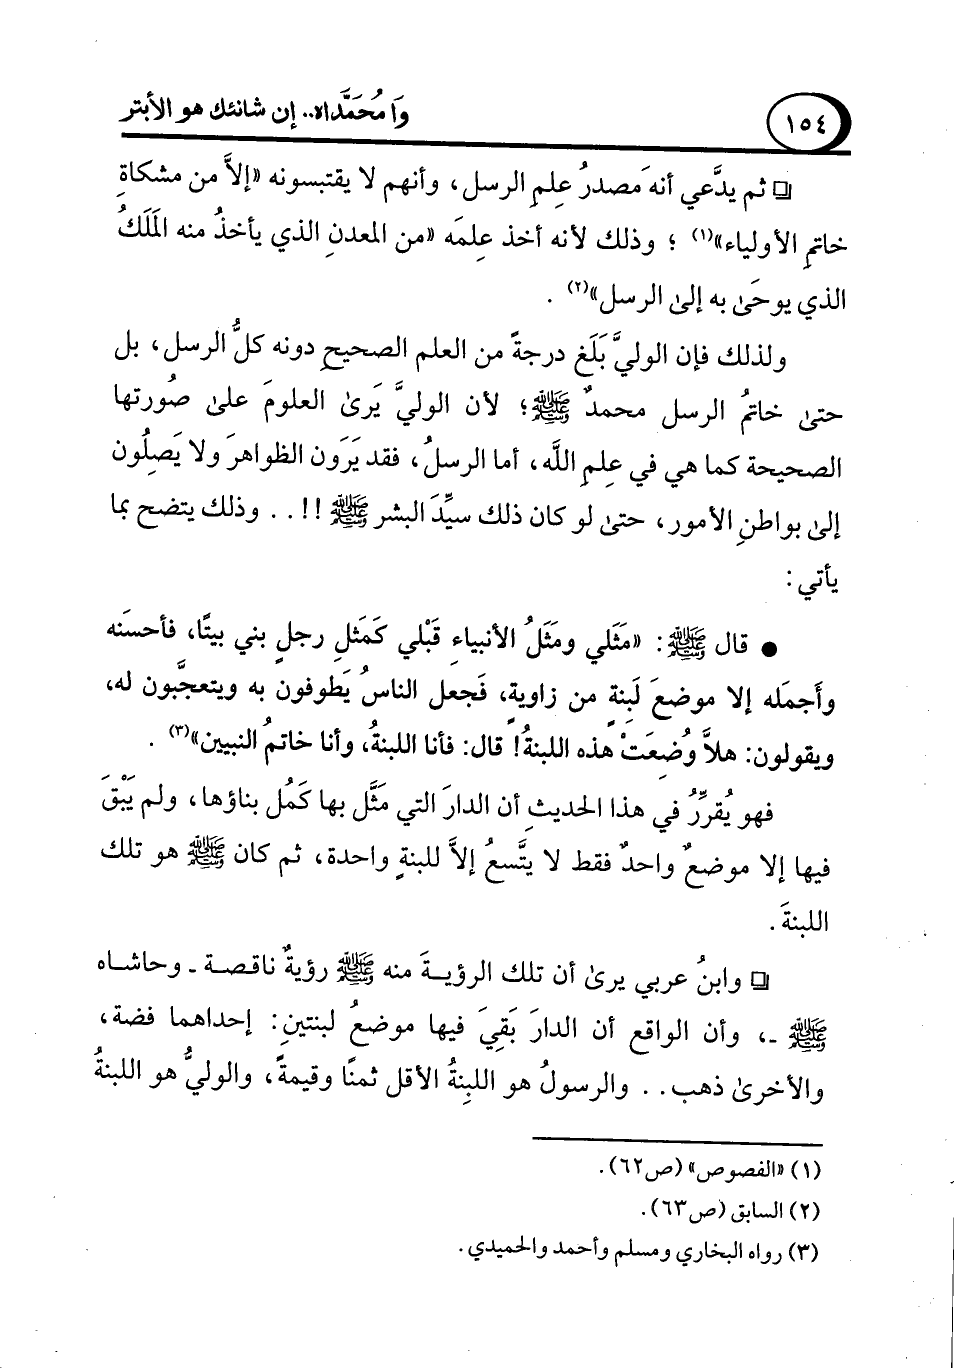 ١٥٤
وَا مُحَمَّدَاه.. إن شانئك هو الأبتر
❏ ثم يدَّعي أنه مَصدرُ عِلمِ الرسل، وأنهم لا يقتبسونه «إلاَّ من مشكاةِ
خاتمِ الأولياء»(١) ؛ وذلك لأنه أخذ علِمَه «من المعدنِ الذي يأخذُ منه المَلَكُ
الذي يوحَىٰ به إلىٰ الرسل»(٢) .
ولذلك فإن الوليَّ بَلَغ درجةً من العلم الصحيحِ دونه كلُّ الرسل، بل
حتىٰ خاتمُ الرسل محمدٌ ﷺ؛ لأن الوليَّ يَرىٰ العلومَ علىٰ صُورتها
الصحيحة كما هي في عِلمِ اللَّه، أما الرسلُ، فقد يَرَون الظواهرَ ولا يَصِلُون
إلىٰ بواطنِ الأمور، حتىٰ لو كان ذلك سيِّدَ البشر ﷺ !!. . وذلك يتضح بما
يأتي:
● قال ﷺ: «مَثَلي ومَثَلُ الأنبياءِ قَبْلي كَمَثَلِ رجلٍ بني بيتًا، فأحسَنَه
وأَجمَله إلا موضعَ لَبِنةٍ من زاويةٍ، فَجعل الناسُ يَطوفون به ويتعجَّبون له،
ويقولون: هلاَّ وُضِعَتْ هذه اللبنةُ! قال: فأنا اللبنةُ، وأنا خاتمُ النبيين»(٣) .
فهو يُقرِّرُ في هذا الحديثِ أن الدارَ التي مَثَّل بها كَمُل بناؤها، ولم يَبْقَ
فيها إلا موضعٌ واحدٌ فقط لا يتَّسعُ إلاَّ للبنةٍ واحدة، ثم كان ﷺ هو تلك
اللبنةَ.
❏ وابنُ عربي يرىٰ أن تلك الرؤيـةَ منه ﷺ رؤيةٌ ناقصة ـ وحاشـاه
ﷺ ـ، وأن الواقع أن الدارَ بَقِيَ فيها موضعُ لبنتينِ: إحداهما فضة،
والأخرىٰ ذهب. . والرسولُ هو اللبِنةُ الأقل ثمنًا وقيمةً، والوليُّ هو اللبنةُ
(١) «الفصوص» (ص٦٢).
(٢) السابق (ص٦٣).
(٣) رواه البخاري ومسلم وأحمد والحميدي.